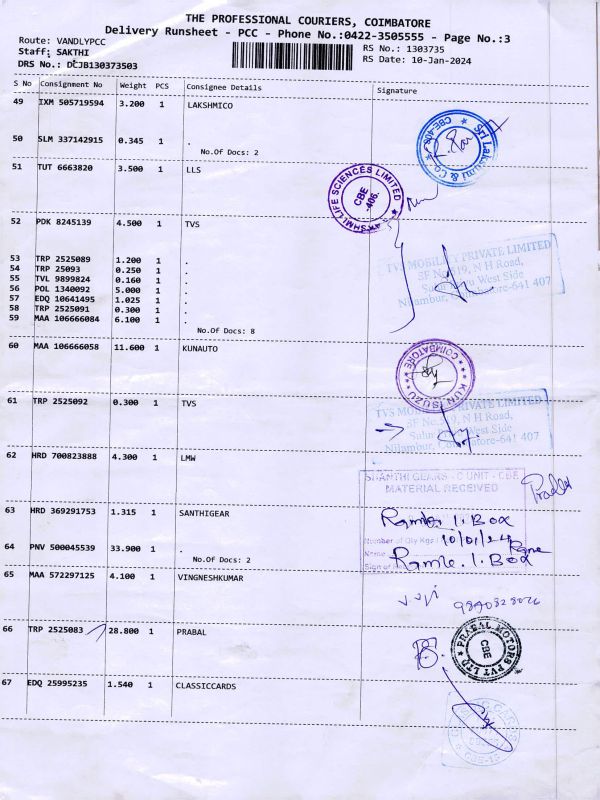 THE PROFESSIONAL COURIERS, COIMBATORE
Delivery Runsheet - PCC - Phone No.:0422-3505555 - Page No.:3
Route: VANDLYPCC
RS No.: 1303735
Staff: SAKTHI
RS Date: 10-Jan-2024
DRS No.: DCJB130373503
S No Consignment No Weight PCS Consignee Details Signature
49 IXM 505719594 3.200 1 LAKSHMICO
50 SLM 337142915 0.345 1 .
No.Of Docs: 2
Sri Lakshmi & Co.
51 TUT 6663820 3.500 1 LLS
LAKSHMI LIFE SCIENCES LIMITED
CBE
-406.
52 PDK 8245139 4.500 1 TVS
53 TRP 2525089 1.200 1 .
54 TRP 25093 0.250 1 .
55 TVL 9899824 0.160 1 .
56 POL 1340092 5.000 1 .
57 EDQ 10641495 1.025 1 .
58 TRP 2525091 0.300 1 .
59 MAA 106666084 6.100 1 .
No.Of Docs: 8
TVS MOBILITY PRIVATE LIMITED
N H Road,
West Side
Nilambur, Coimbatore-641 407
60 MAA 106666058 11.600 1 KUNAUTO
COIMBATORE
KUN ISUZU
61 TRP 2525092 0.300 1 TVS
TVS MOBILITY PRIVATE LIMITED
N H Road,
West Side
Nilambur, Coimbatore-641 407
62 HRD 700823888 4.300 1 LMW
SHANTHI GEARS - C UNIT - CBE
MATERIAL RECEIVED
63 HRD 369291753 1.315 1 SANTHIGEAR
1. Box
Number of Qty Kgs 10/01/24
64 PNV 500045539 33.900 1 .
No.Of Docs: 2
Name
1. Box
Sign of
65 MAA 572297125 4.100 1 VINGNESHKUMAR
66 TRP 2525083 28.800 1 PRABAL
PRABAL MOTORS PVT LTD
CBE
67 EDQ 25995235 1.540 1 CLASSICCARDS